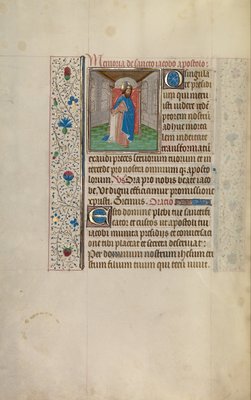 Memoria de sancto iacobo apostolo:
O singula
re presidi
um qui meru
isti videre rede
ptorem nostrū
adhuc morta
lem in deitate
transformatū
exaudi preces seruorum tuorum et in
tercede pro nostra omnium q. aposto
lorum. Vs Ora pro nobis beate iaco
be Vt digni efficiamur promissione
xpristi. Oremus. Oracio
Esto domine plebi tue sanctifi
cator et custos vt apostoli tui
iacobi munita presidijs et conuersaci
one tibi placeat et secreta deseruiat:
Per dominum nostrum ihesum cri
stum filium tuum qui tecū viuit.